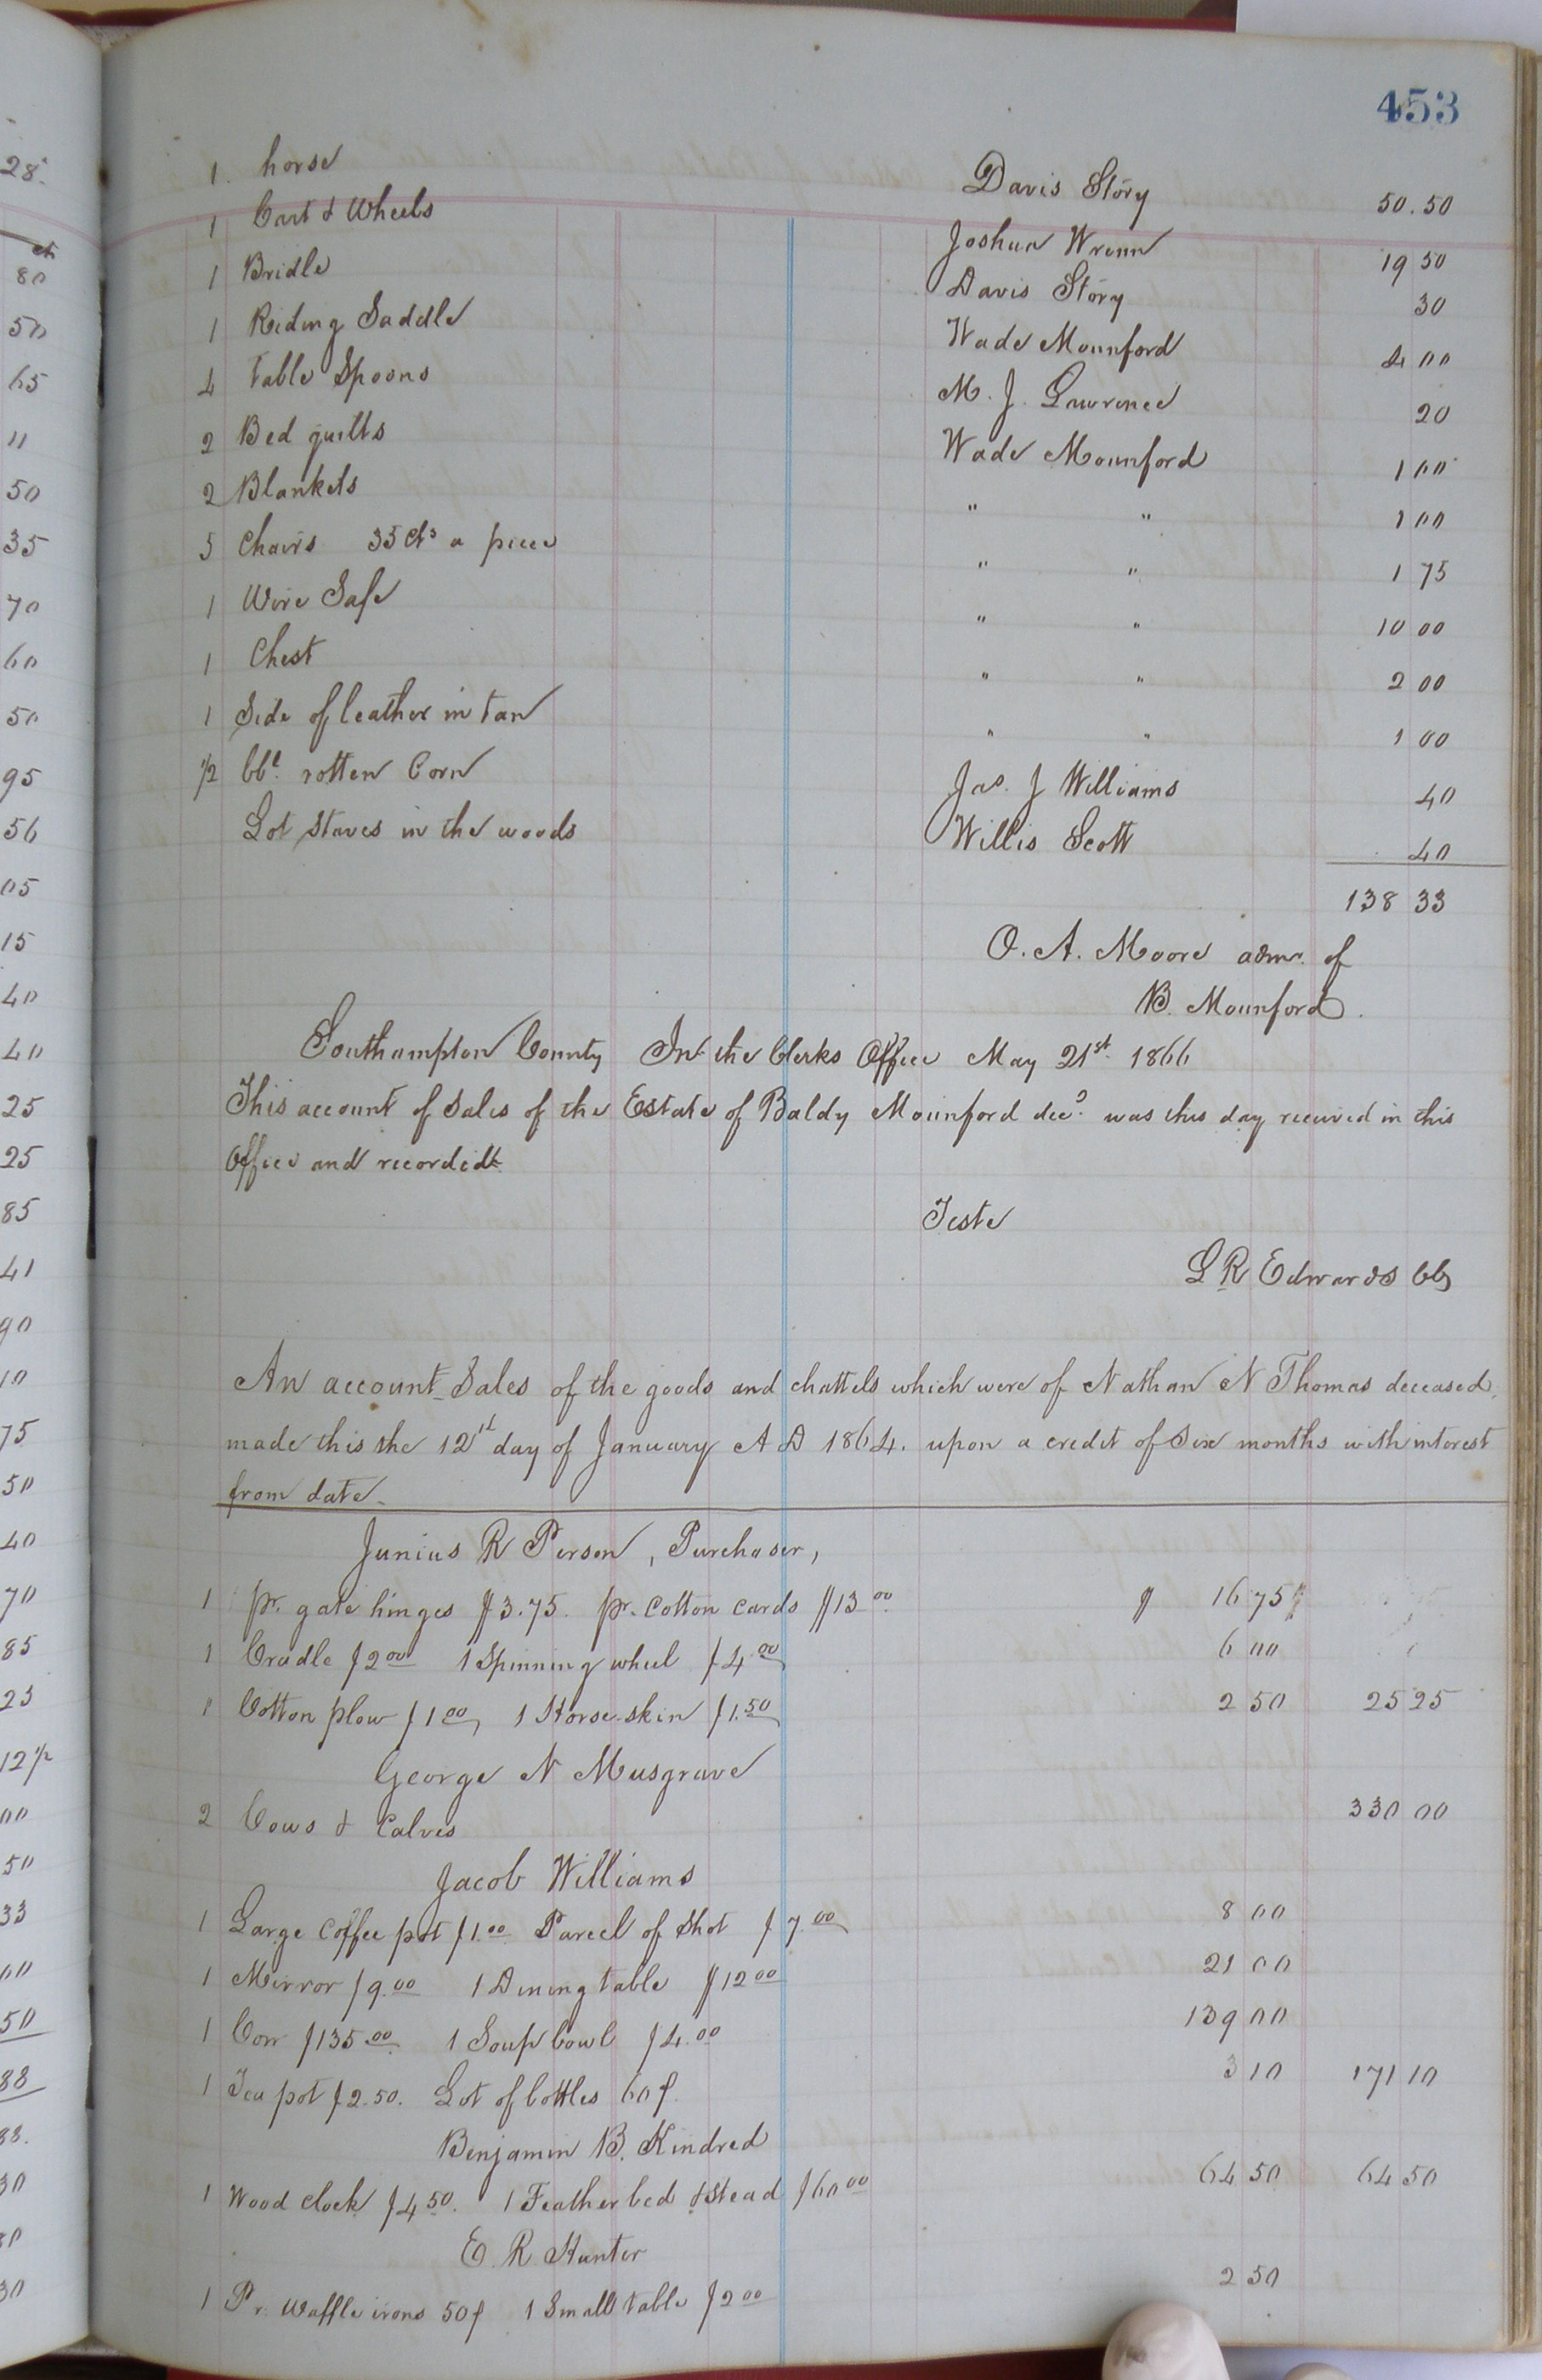 453
1. horse Davis Story 50.50
1 Cart & Wheels Joshua Wrenn 19 50
1 Bridle Davis Story 30
1 Riding Saddle Wade Mounford 4 00
4 Table Spoons M. J. Lawrence 20
2 Bed quilts Wade Mounford 1 00
2 Blankets " " 1 00
5 Chairs 35 cts a piece " " 1 75
1 Wire Safe " " 10 00
1 Chest " " 2 00
1 Side of leather in tan " " 1 00
1/2 bbl. rotten Corn Jas. J Williams 40
Lot staves in the woods Willis Scott 40
138 33
O. A. Moore admr. of
B. Mounford.
Southampton County In the Clerks Office May 21st. 1866
This account of Sales of the Estate of Baldy Mounford decd. was this day received in this
Office and recorded
Teste
L R Edwards Clk
An account Sales of the goods and chattels which were of Nathan N Thomas deceased,
made this the 12th day of January A D 1864. upon a credit of Six months with interest
from date.
Junius R Person, Purchaser,
1 pr. gate hinges $3.75. pr. Cotton cards $13 00 $ 16 75
1 Cradle $2 00 1 Spinning wheel $4 00 6 00
1 Cotton plow $1 00, 1 Horse-skin $1.50 2 50 25 25
George N Musgrave
2 Cows & Calves 330 00
Jacob Williams
1 Large Coffee pot $1.00 Parcel of Shot $7.00 8 00
1 Mirror $9.00 1 Dining table $12 00 21 00
1 Cow $135.00 1 Soup bowl $4.00 139 00
1 Tea pot $2.50. Lot of bottles 60¢ 3 10 171 10
Benjamin B. Kindred
1 Wood clock $4 50. 1 Feather bed & stead $60 00 64 50 64 50
E. R. Hunter
1 Pr. Waffle irons 50¢ 1 Small table $2 00 2 50
28.
cts
80
50
65
11
50
35
70
60
50
95
56
05
15
40
40
25
25
85
41
90
10
75
50
40
70
85
23
12 1/2
00
50
33
00
50
88
88.
30
80
30